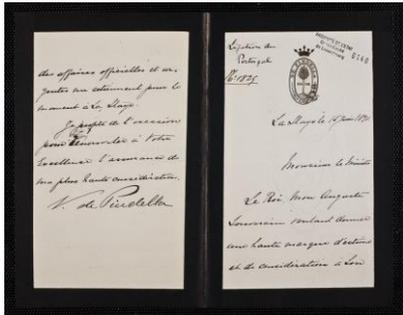 des affaires officielles et ur-
gentes me retiennent pour le
moment à La Haye.
Je profite de l'occasion
pour renouveler à Votre
Excellence l'assurance de
ma plus haute considération.
V. de Pindella
Légation du
Portugal
La Haye le
Monsieur le Ministre
Le Roi, Mon Auguste
Souverain voulant donner
une haute marque d'estime
et de considération à Son